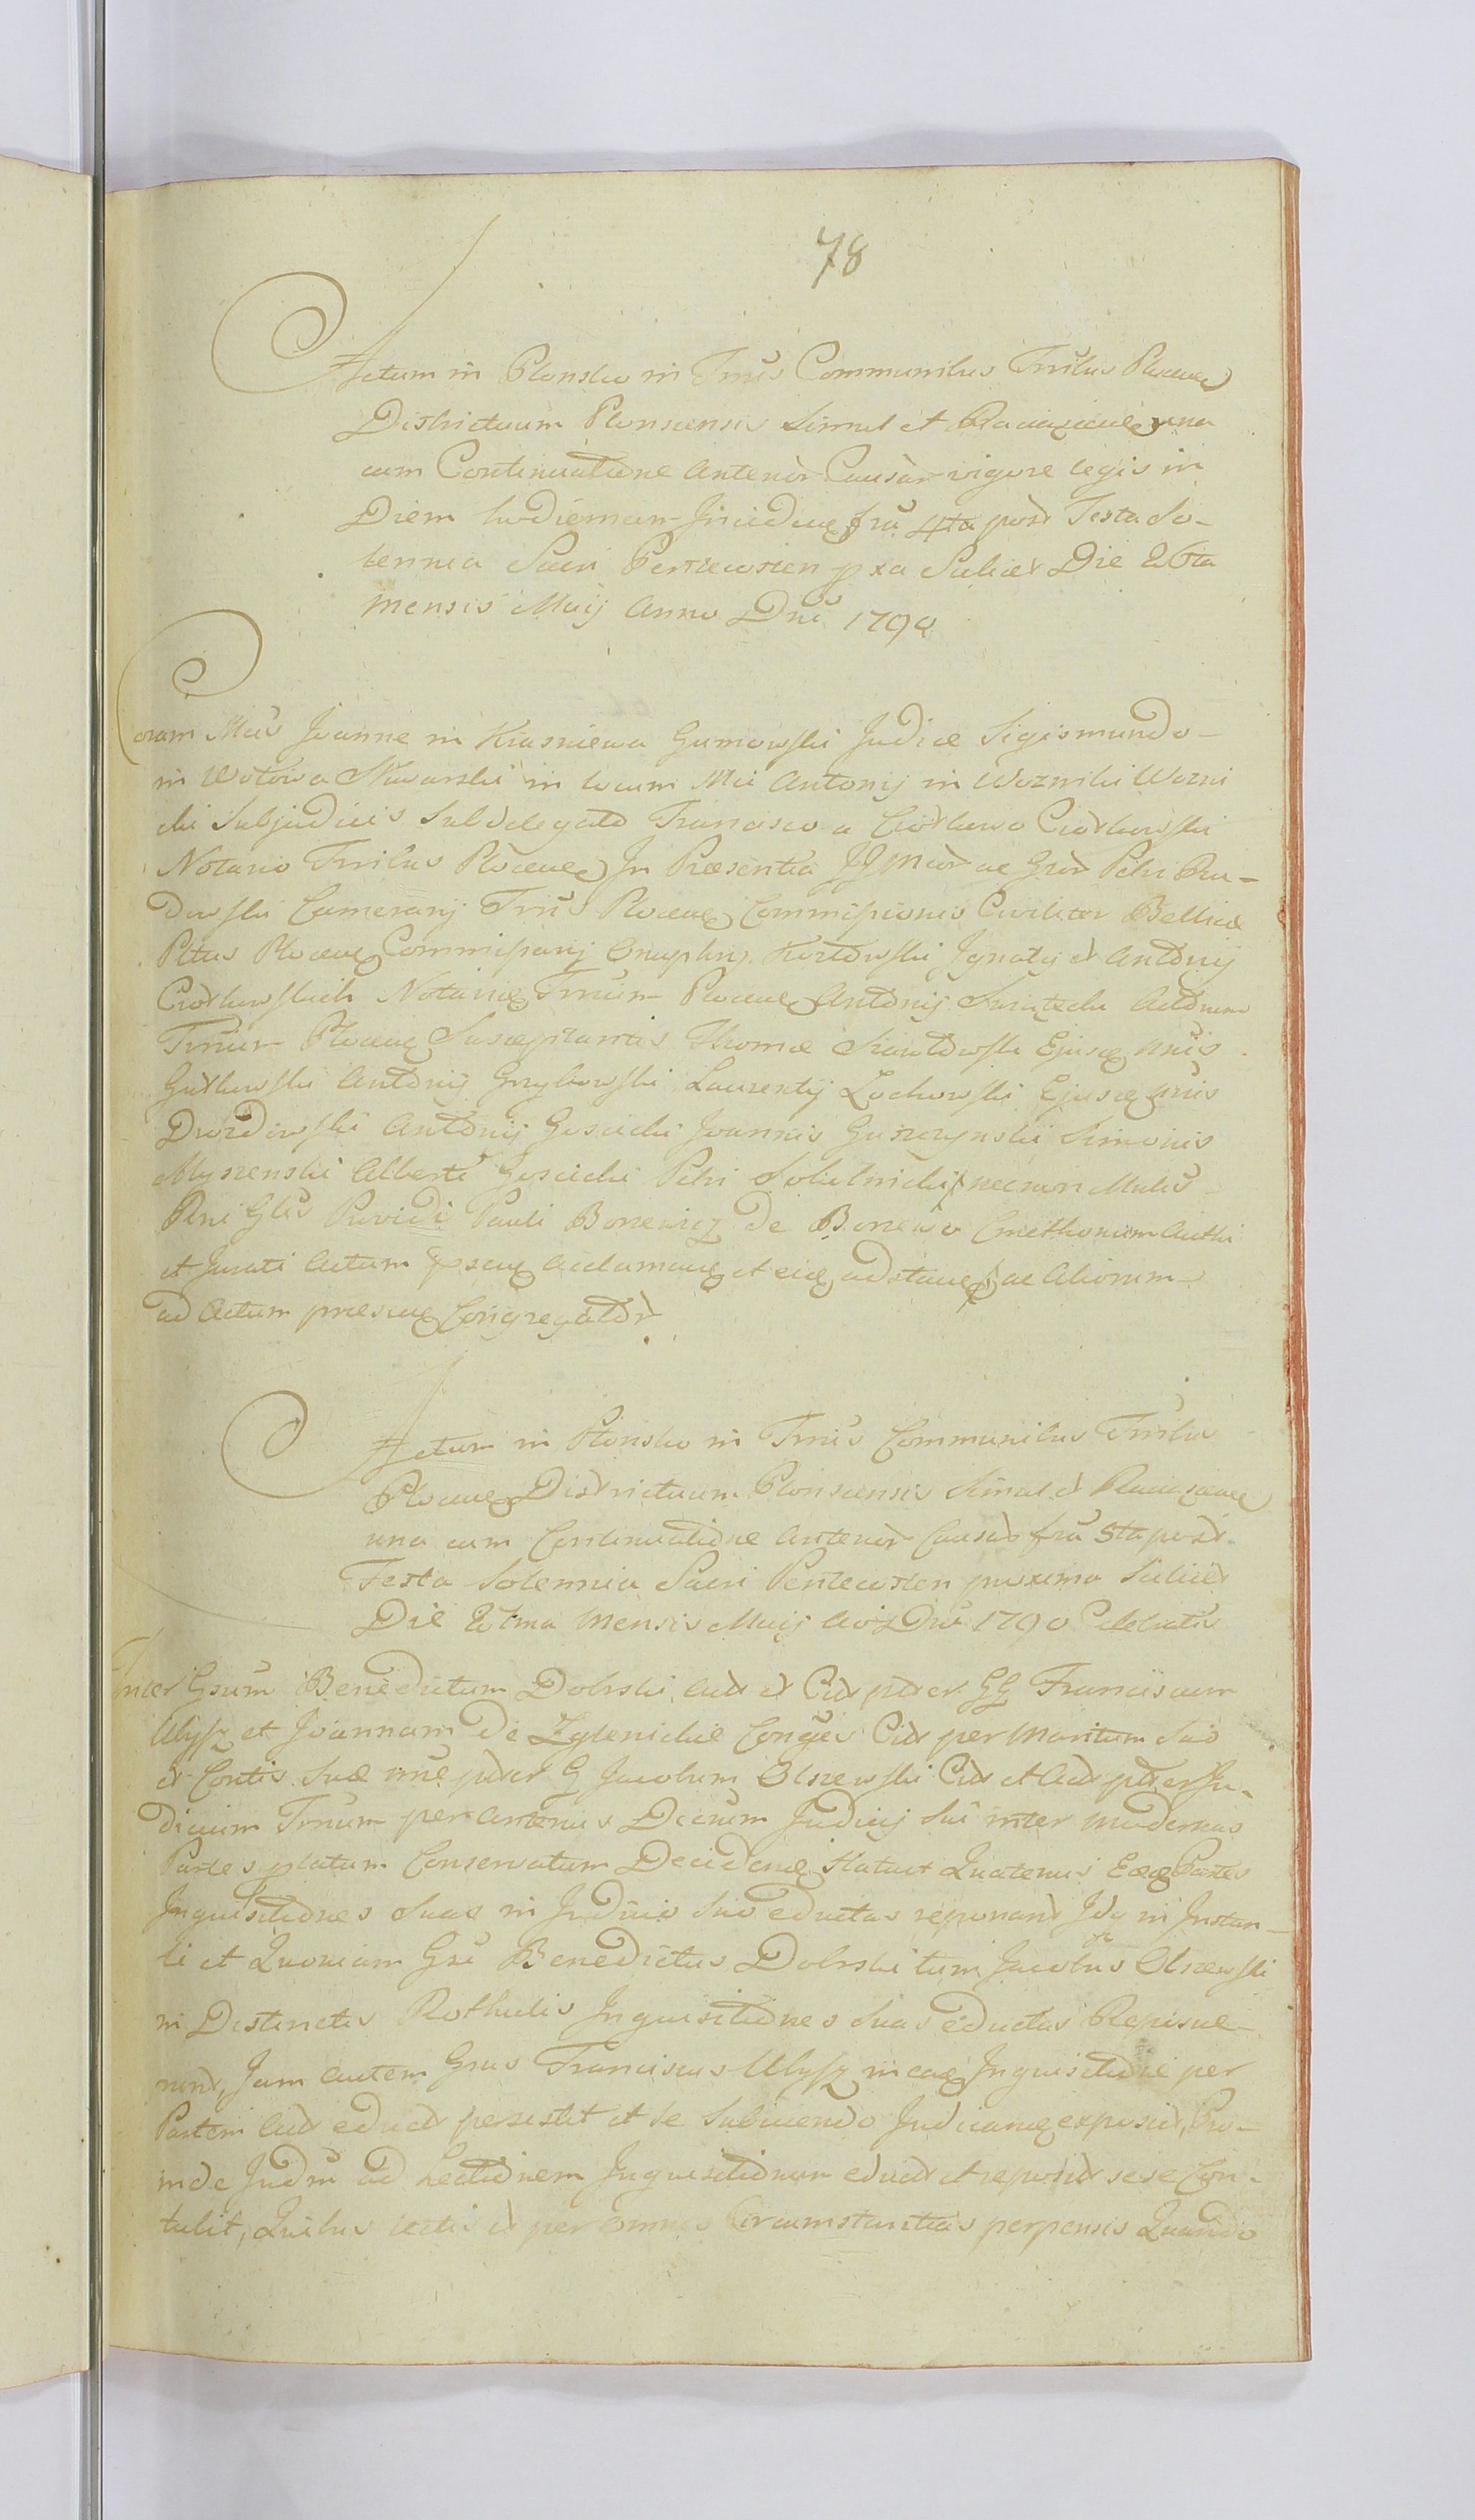 78
Actum in Plonsko in Trris Communibus Trribus Plocen
Districtuum Plonscensis Simul et Raciazcen una
cum Continuatione anterior Causar vigore legis in
Diem hodiernam Inciden fria 4ta post Festa So-
lennia Sacri Pentecosten pxa Scilicet Die 26ta
mensis Maij Anno Dni 1790
Coram Mcis Joanne in Krasniewa Gumowski Judice Sigismundo
in Nawarski in locum Mci Antonij in Wozniki Wozni
cki Subjudicis Subdelegato Francisco a Ciotkowo Ciotkowski
Notario Trribus Plocen In Præsentia JJ Mcor ac Gror Petri Ru-
dowski Camerarij Trris Plocen Commissionis Civilitor Bellicæ
Pltus Plocen Commissarij Onuphrij Ignatij et Antonij
Ciotkowskich Notariæ Trrium Plocen Antonij Swięcki Actorum
Trrium Plocen Susceptantis Thomæ Ejusq
Gutkowski Antonij Grzybowski Laurentij Zochowski Ejusq
Drozdowski Antonij Goscicki Joannis Guszczynski Simonis
Myszenski Alberti Goscicki Petri Sobolnicki necnon Multis
Providi Pauli Bonewicz de Bonewo
et Jurati Actum pscen Acclaman et eid adstan ac Aliorum
ad Actum præscen Congregator
Actum in Plonsko in Trris Communibus Trribus
Plocen Districtuum Plonscensis Simul et Raciazcen
una cum Continuatione anterior Causar fria 5ta post
Festa Solennia Sacri Pentecosten proxima Scilicet
Die 27ma Mensis Maij Ao Dni 1790 Celebratis
Inter Gsum Benedictum Dobrski Act et Cit pter GG Franciscum
Ulysz et Joannam de Zglenickie Conges Cit per Maritum Suo
et Contis Suæ nne pter G Jacobum Olszewski Cit et Act pter Ju-
dicium Trrium per anterius Decrum Judicij Sui inter modernas
Partes platum Conservatum Deciden Statuit Quatenus Eæq Partes
Inquisitiones Suas in Judicio Suo eductas reponant Idq in Instan-
ti et Quoniam Gsi Benedictus Dobrski tum Jacobus Olszewski
in Distinctis Rothulis Inquisitiones Suas eductas Reposue-
runt, Jam autem Gsus Franciscus Ulysz in eaq Inquisitione per
Partem Act educt persistit et se Subiiciendo Judican exposuit, Pro-
inde Judm ad Lectionem Inquisitionum educt et reposit sese Con-
tulit, Quibus lectis et per omnes Circumstantias perpensis Quando